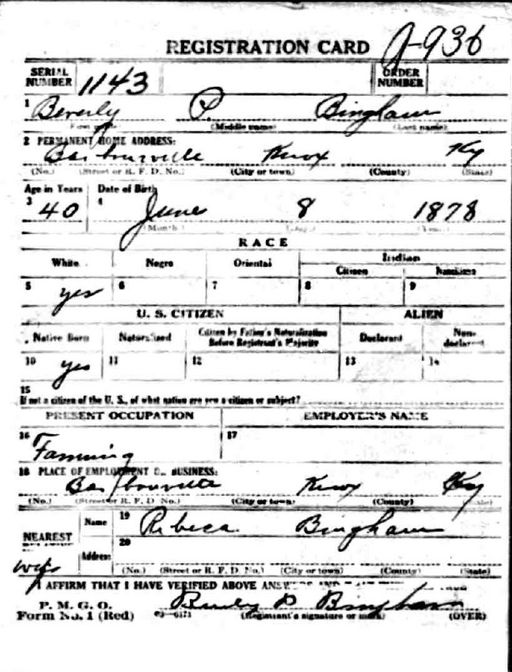 REGISTRATION CARD
SERIAL NUMBER 1143 ORDER NUMBER
1 Beverly P Bingham
(Middle name) (Last name)
2 PERMANENT HOME ADDRESS:
Barbourville Knox Ky
(No.) (Street or R. F. D. No.) (City or town) (County) (State)
Age in Years Date of Birth
3 40 4 June 8 1878
(Month) (Year)
RACE
White Negro Oriental Indian
Citizen Noncitizen
5 yes 6 7 8 9
U. S. CITIZEN ALIEN
Native Born Naturalized Citizen by Father's Naturalization Before Registrant's Majority Declarant Non-declarant
10 yes 11 12 13 14
15
If not a citizen of the U. S., of what nation are you a citizen or subject?
PRESENT OCCUPATION EMPLOYER'S NAME
16 Farming 17
18 PLACE OF EMPLOYMENT OR BUSINESS:
Barbourville Knox Ky
(No.) (Street or R. F. D. No.) (City or town) (County) (State)
NEAREST Name 19 Rebeca Bingham
wife Address 20
(No.) (Street or R. F. D. No.) (City or town) (County) (State)
I AFFIRM THAT I HAVE VERIFIED ABOVE ANSWERS AND THAT
P. M. G. O.
Form No. 1 (Red) 03-6171 (Registrant's signature or mark) (OVER)